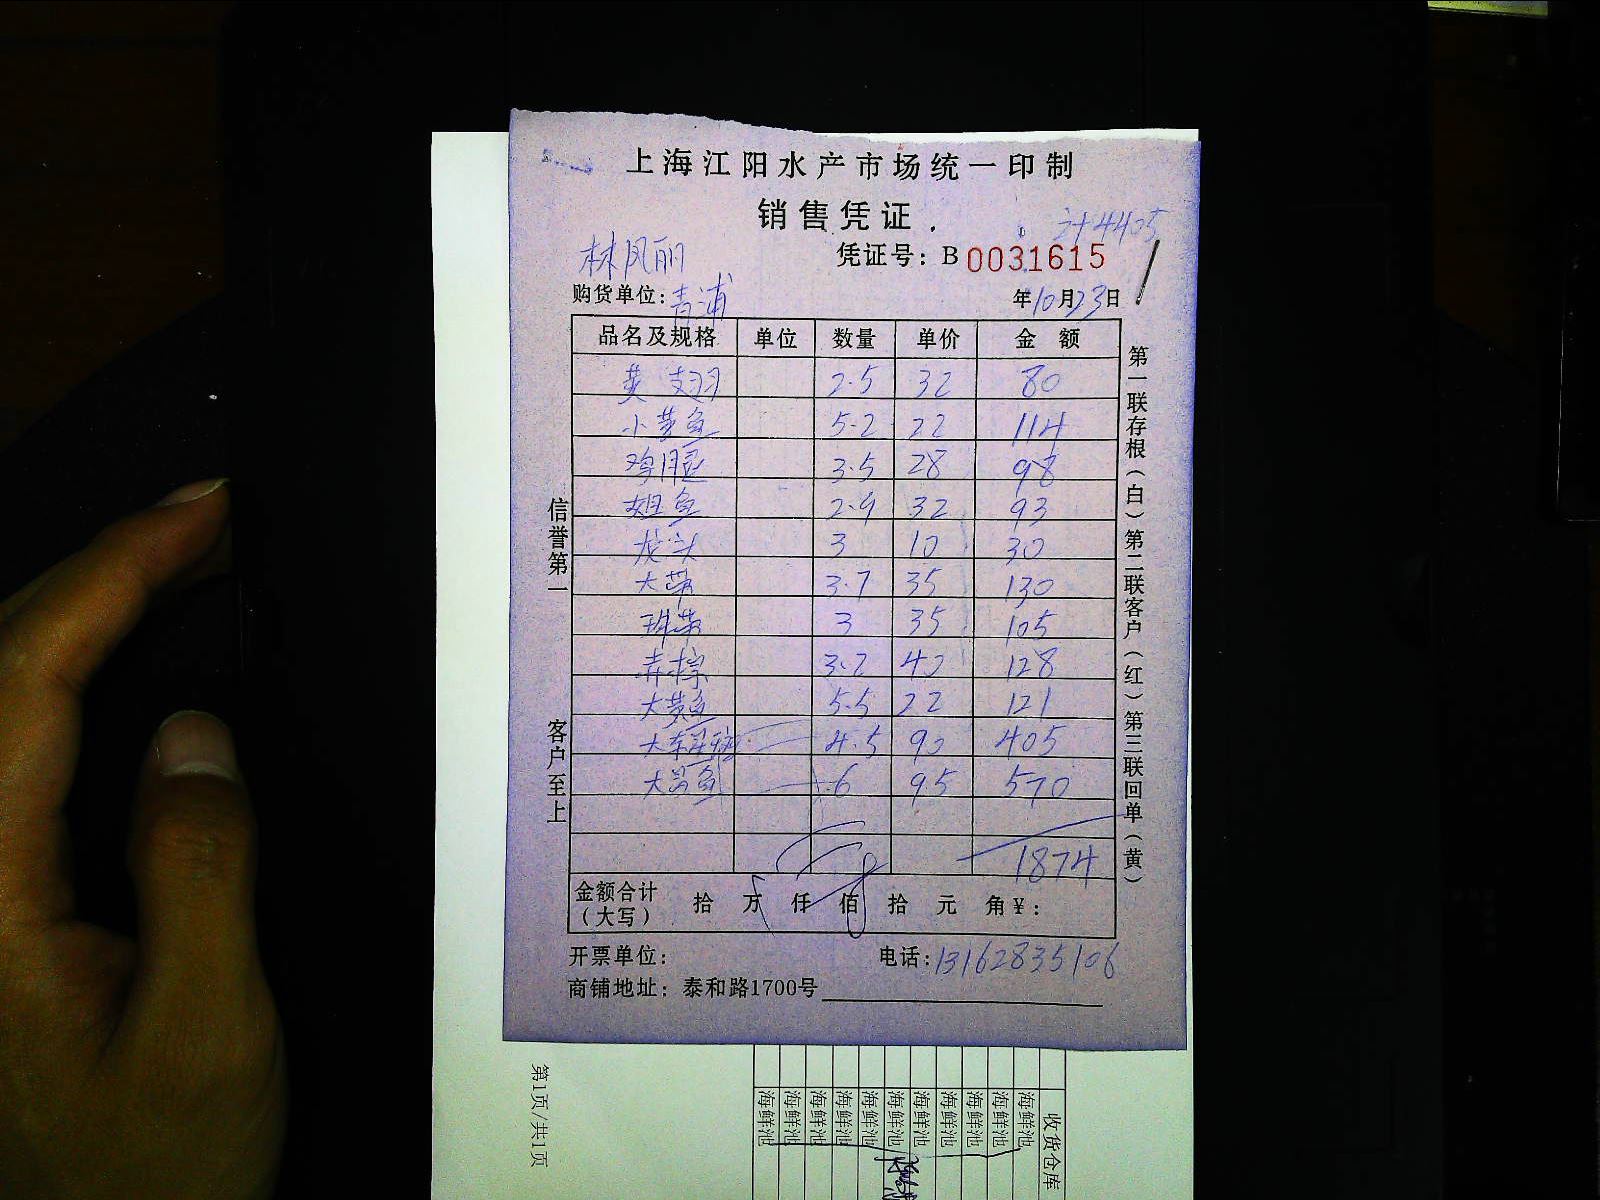 上海江阳水产市场统一印制
销售凭证
计4405
林凤丽
凭证号：B 0031615
购货单位：青浦
年10月23日
品名及规格 单位 数量 单价 金额
黄翅 2.5 32 80
小黄鱼 5.2 22 114
鸡腿 3.5 28 98
鲳鱼 2.9 32 93
龙头 3 10 30
大带 3.7 35 130
3 35 105
赤棕 3.2 40 128
大黄鱼 5.5 22 121
4.5 90 405
6 95 570
1874
金额合计（大写） 拾 万 仟 佰 拾 元 角￥：
开票单位： 电话：13162835106
商铺地址：泰和路1700号
信誉第一 客户至上
第一联存根（白）第二联客户（红）第三联回单（黄）
第1页/共1页
收货仓库
海鲜池
海鲜池
海鲜池
海鲜池
海鲜池
海鲜池
海鲜池
海鲜池
海鲜池
海鲜池
海鲜池